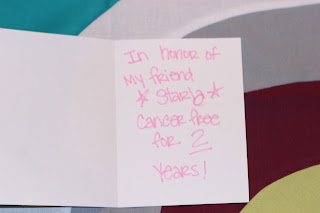 In honor of
my friend
* Starla *
cancer free
for 2
years!